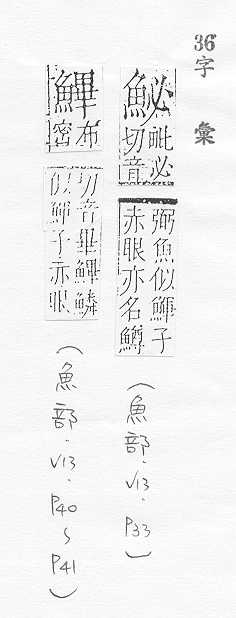 36字 彙
鮅
毗必
切音
弼魚似鯶子
赤眼亦名鱒
(魚部·V13·P33)
布
密
切音畢 鱗
似鯶子赤眼
(魚部·V13·P40~P41)